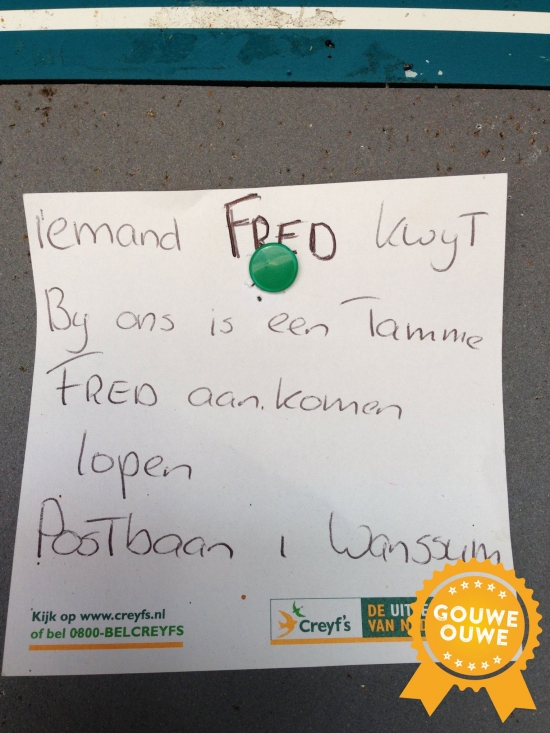 iemand FRED kwyt
By ons is een Tamme
FRED aan.komen
lopen
Postbaan 1 Wanssum
Kijk op www.creyfs.nl
of bel 0800-BELCREYFS
Creyf's
DE UIT
VAN N
GOUWE
OUWE